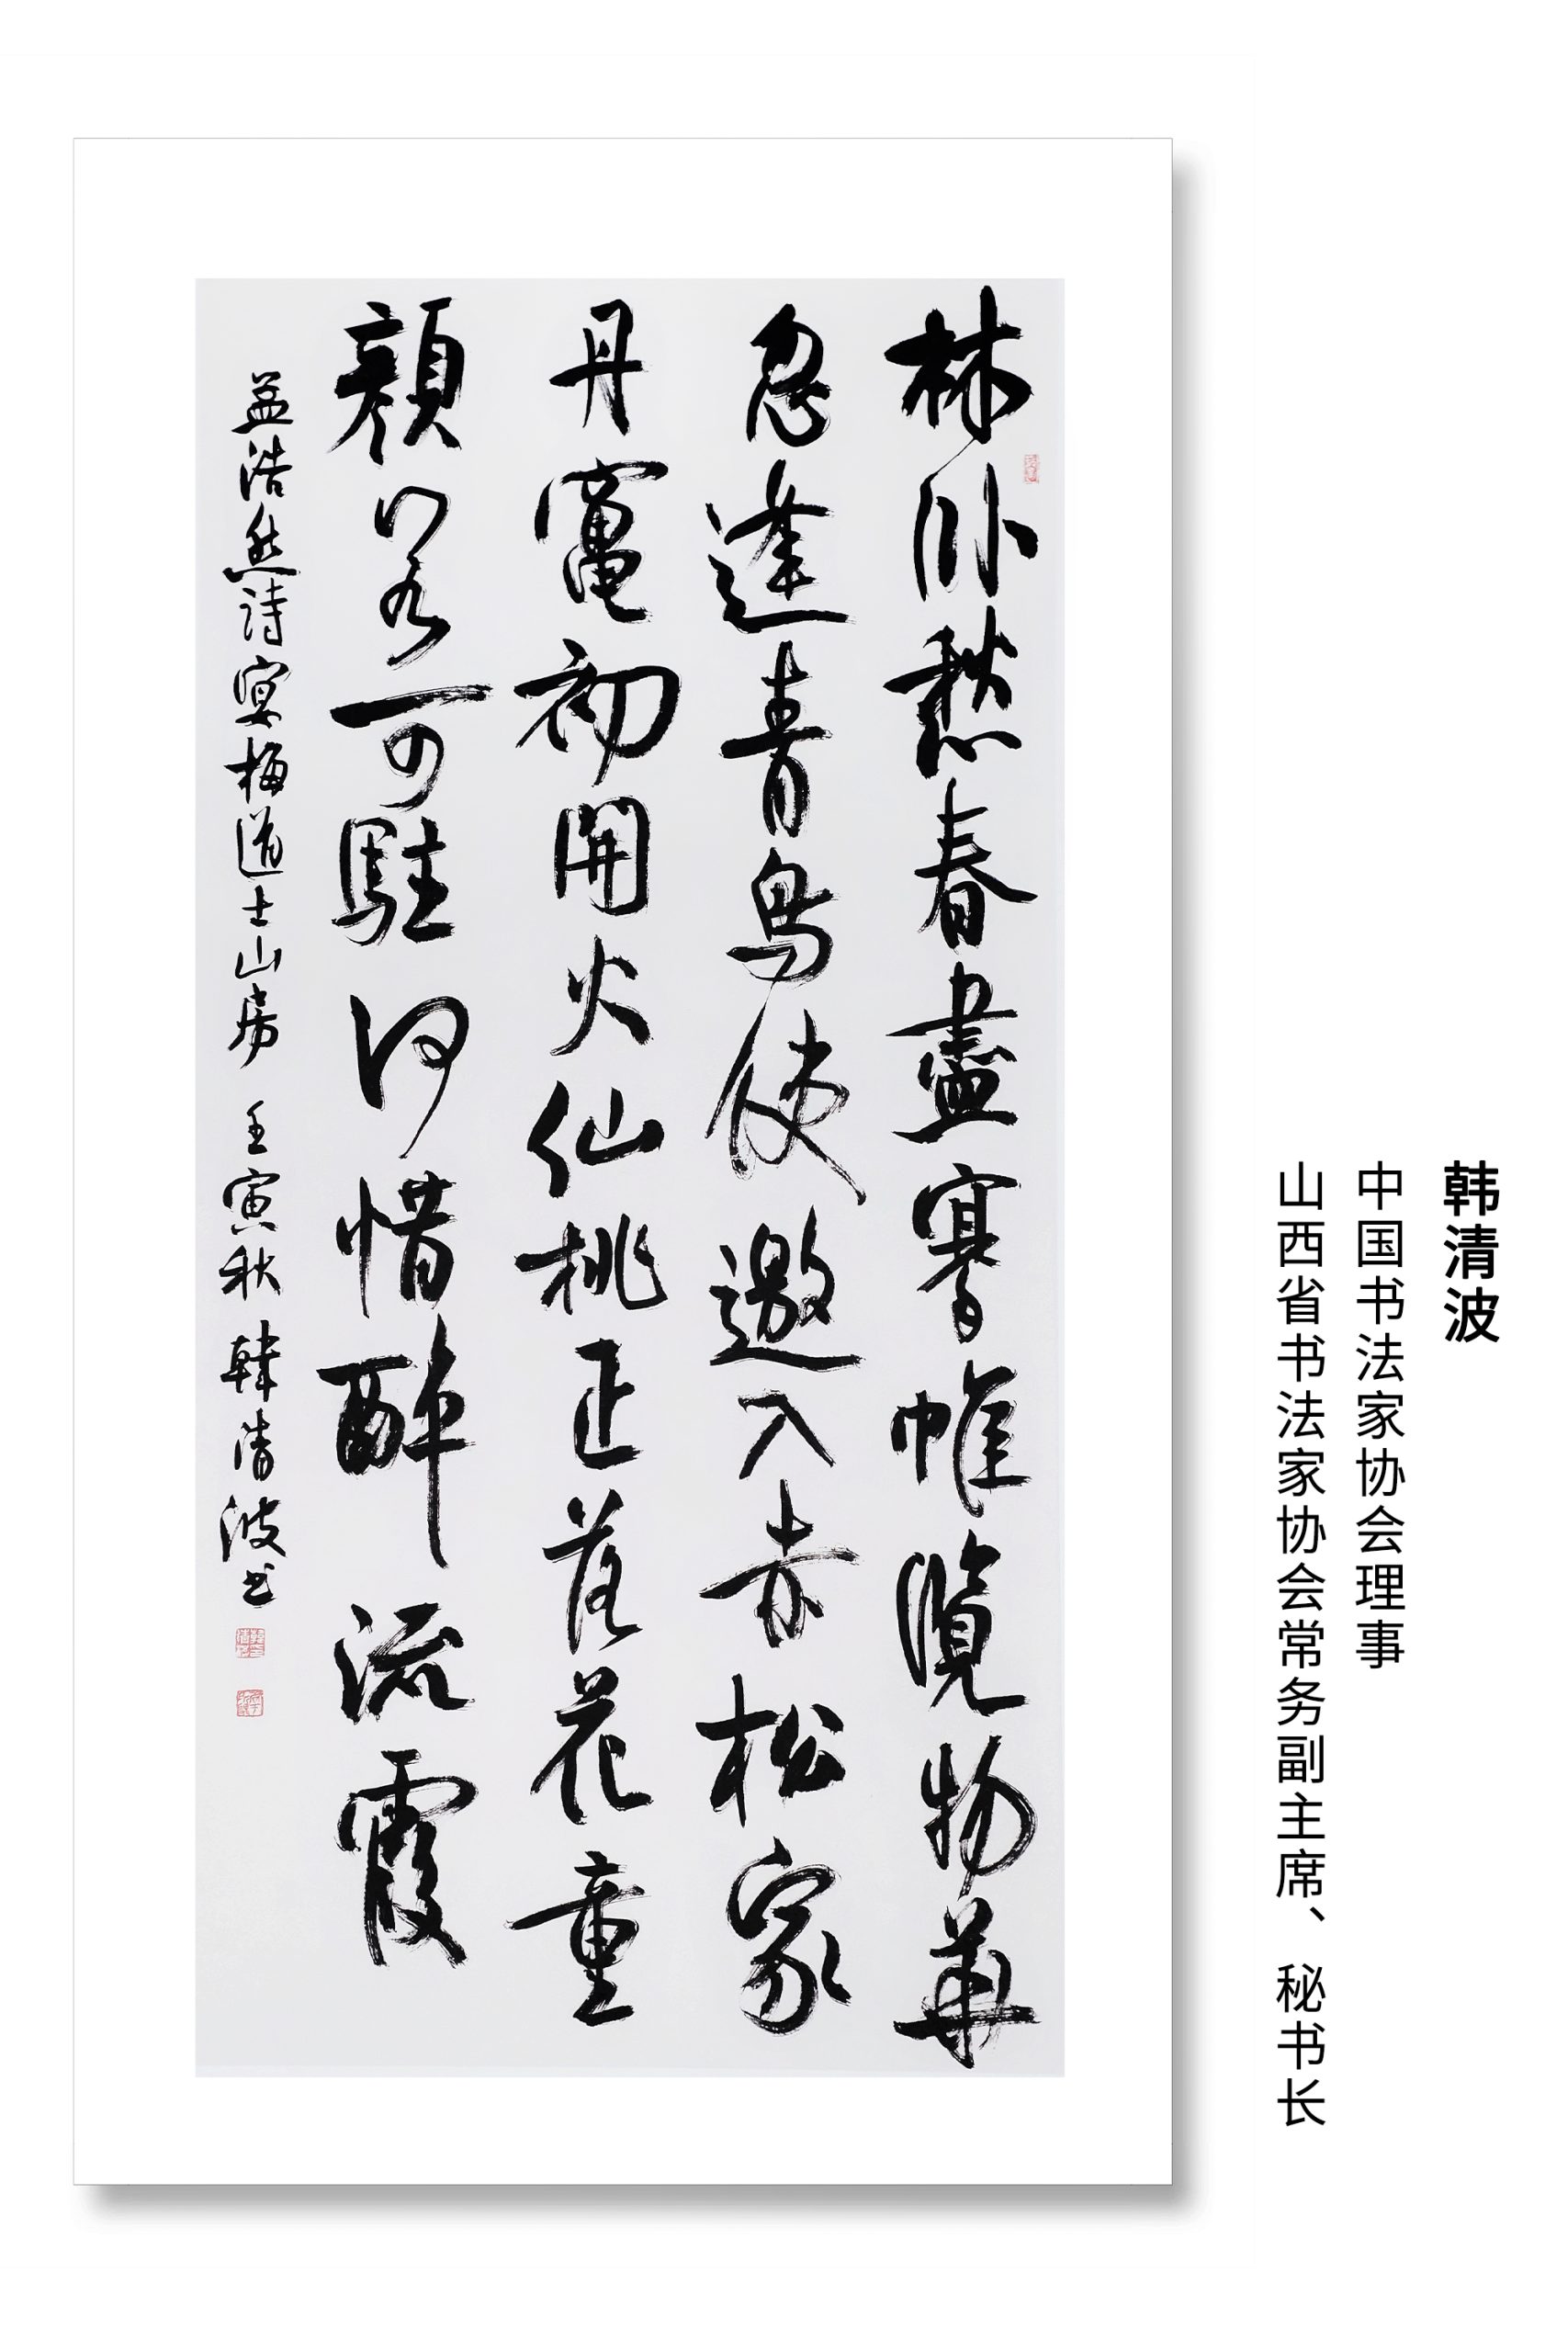 韩清波
中国书法家协会理事
山西省书法家协会常务副主席、秘书长
林卧愁春盡搴帷覽物華
忽逢青鳥使邀入赤松家
丹竈初開火仙桃正落花童
顔若可駐何惜醉流霞
孟浩然詩宴梅道士山房 壬寅秋 韓清波书